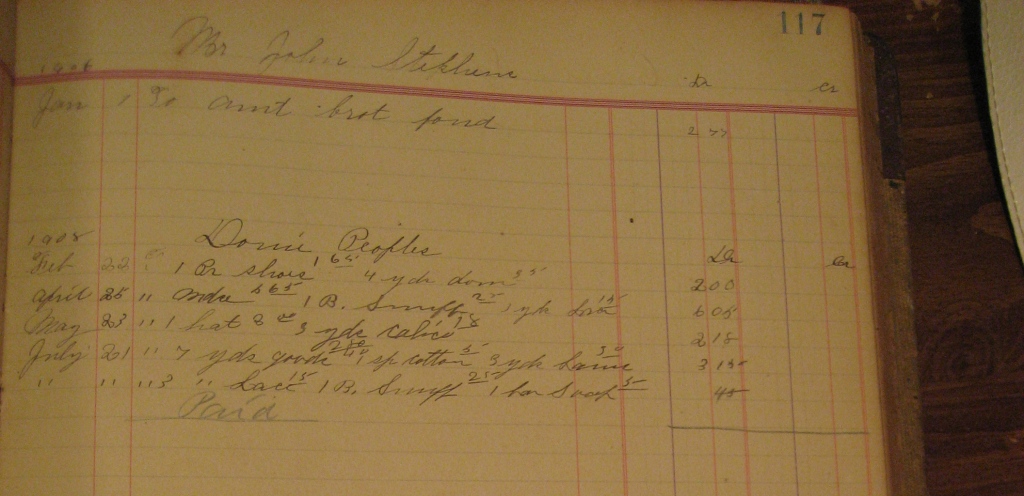 117
Mr John Stephens
1908 Dr Cr
Jan 1 To amt brot forward 2 77
1908 Donie Peoples Dr Cr
Feb 22 " 1 Pr shoes 1 65 4 yds dom 35 2 00
April 25 " mdse 5 65 1 B. Snuff 25 yds 15 6 05
May 23 " 1 hat 2 00 3 yds calico 18 2 18
July 21 " 7 yds goods 1 sp cotton 5 3 yds 30 3 15
" " " 3 " Lace 15 1 B. Snuff 25 1 bar Soap 5 45
Paid